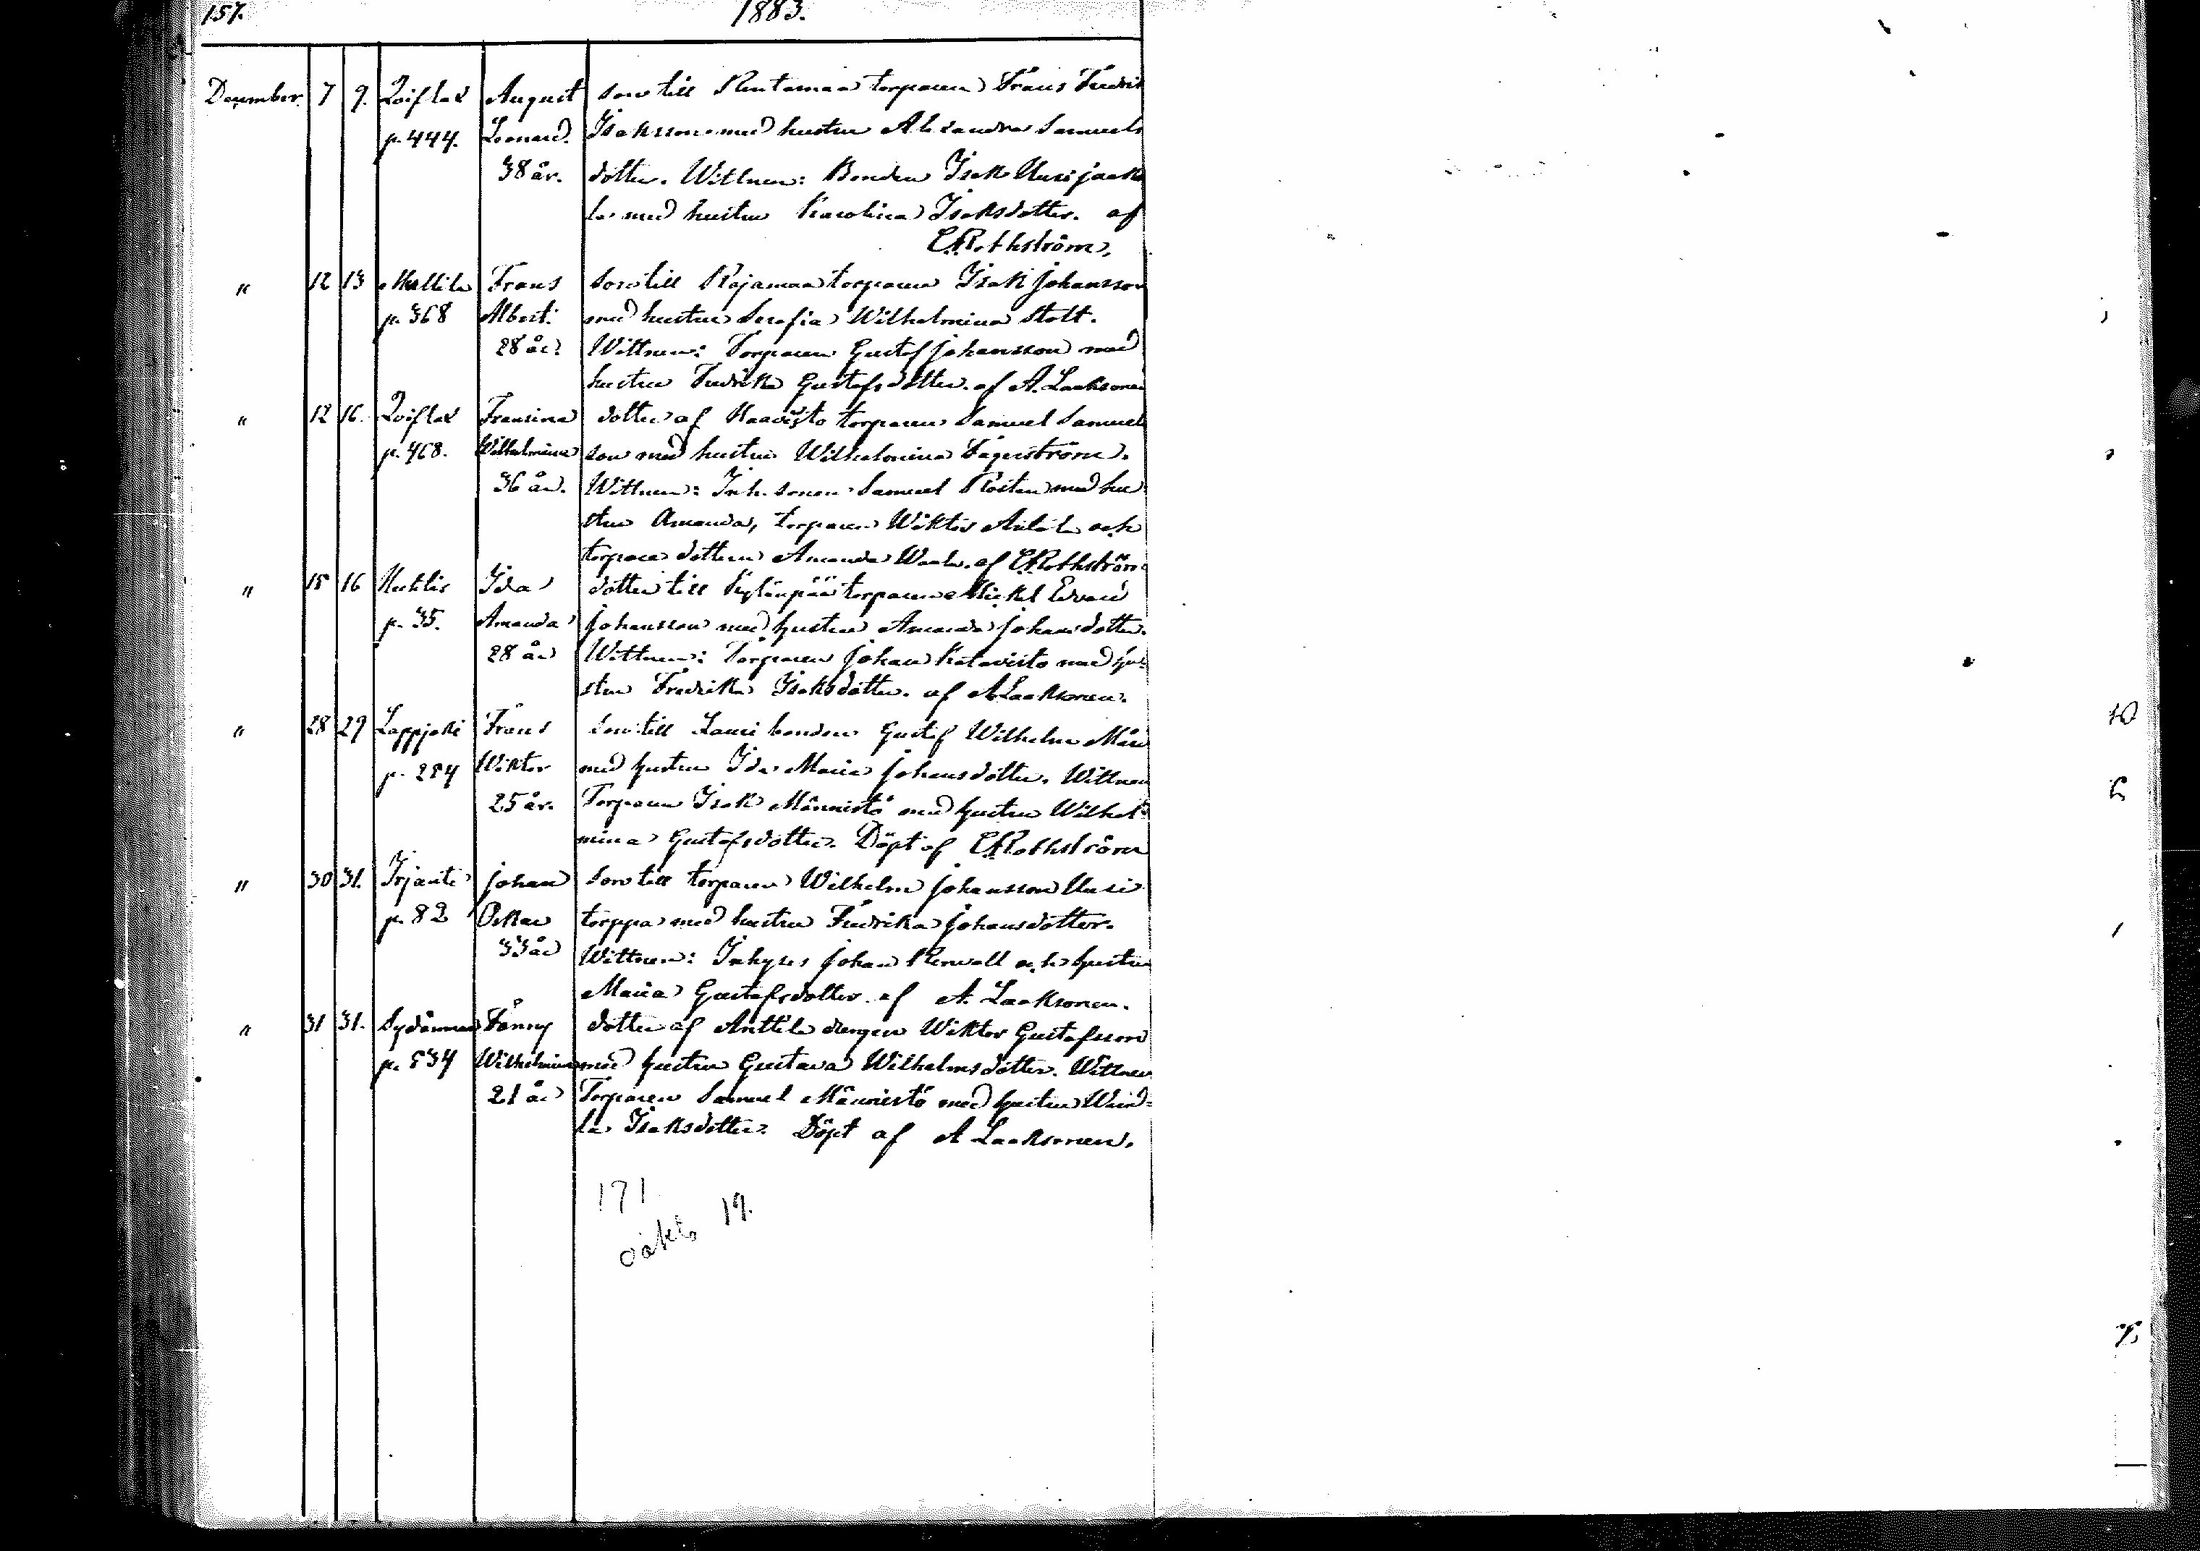 157. 1883.
December. 7 9. Qviflax August son till Rentamaa torparen Frans Fredrik
p. 444. Leonard. Isaksson med hustru Alexandra Samuels
38 år. dotter. Wittnen: Bonden Isak Uusijaak
la med hustru Karolina Isaksdotter. af
C.R.othström,
" 12 13 Mullila Frans son till Rajamaa torparen Isak Johansson
p. 368 Albert. med hustru Serafia Wilhelmina Stolt.
28 år. Wittnen: Torparen Gustaf Johansson med
hustru Fredrika Gustafsdotter. af A. Laaksonen
" 12 16. Qviflax Fransina dotter af Haavisto torparen Samuel Samuel
p. 468. Wilhelmina son med hustru Wilhelmina Fagerström.
36 år. Wittnen: Inh. sonen Samuel med hu
stru Amanda, torparen Wiktor och
torpare dottern Amanda af C.Rothström
" 15 16 Ida dotter till Kylänpää torparen Mickel Edvard
p. 35. Amanda Johansson med hustru Amanda Johansdotter.
28 år Wittnen: Torparen Johan Katavisto med hu-
stru Fredrika Isaksdotter. af A Laaksonen.
" 28 29 Lappjoki Frans son till Lauri bonden Gustaf Wilhelm
p. 284 Wiktor med hustru Ida Maria Johansdotter. Wittnen
25 år. Torparen Isak Männistö med hustru Wilhel-
mina Gustafsdotter. Döpt af C.Rothström
" 30 31. Irjanti Johan son till torparen Wilhelm Johansson Uusi
p. 82 Oskar torppa med hustru Fredrika Johansdotter.
33 år Wittnen: Inhyses Johan Renvall och hustru
Maria Gustafsdotter. af A. Laaksonen.
" 31 31. Sydänmaa Fanny dotter af Anttila drengen Wiktor Gustafsson
p. 534 Wilhelmina med hustru Gustava Wilhelmsdotter. Wittnen
21 år Torparen Samuel Männistö med hustru Wend-
la Isaksdotter. Döpt af A Laaksonen.
171
oäkta 19.